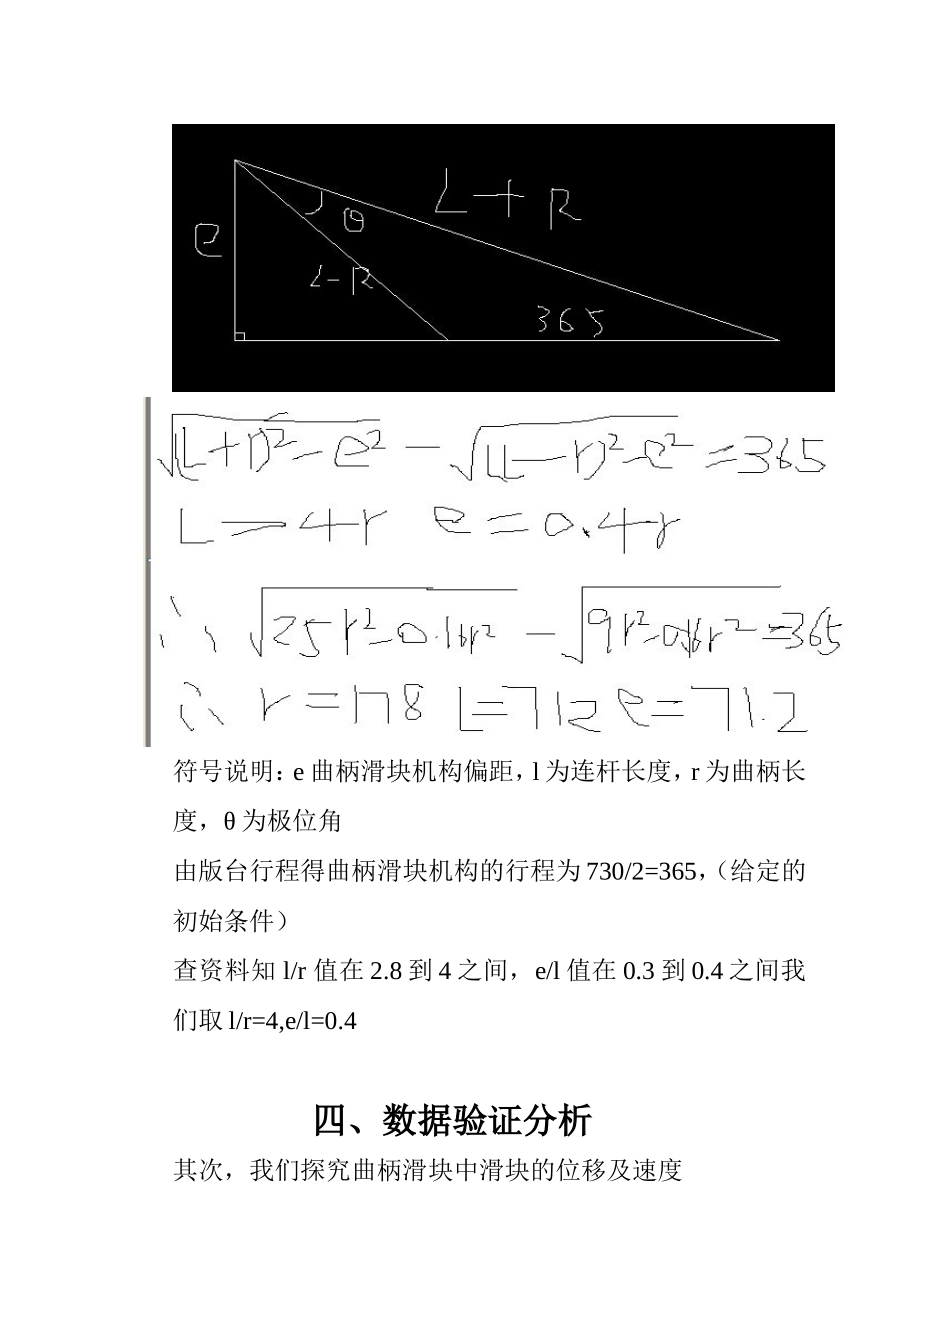 L+R
θ
e
L-R
365
√(L+r)²-e² - √(L-r)²-e² =365
L=4r e=0.4r
∴ √25r²-0.16r² - √9r²-0.16r² =365
∴ r=178 L=712 e=71.2
符号说明：e 曲柄滑块机构偏距，l 为连杆长度，r 为曲柄长
度，θ 为极位角
由版台行程得曲柄滑块机构的行程为 730/2=365，（给定的
初始条件）
查资料知 l/r 值在 2.8 到 4 之间，e/l 值在 0.3 到 0.4 之间我
们取 l/r=4,e/l=0.4
四、数据验证分析
其次，我们探究曲柄滑块中滑块的位移及速度